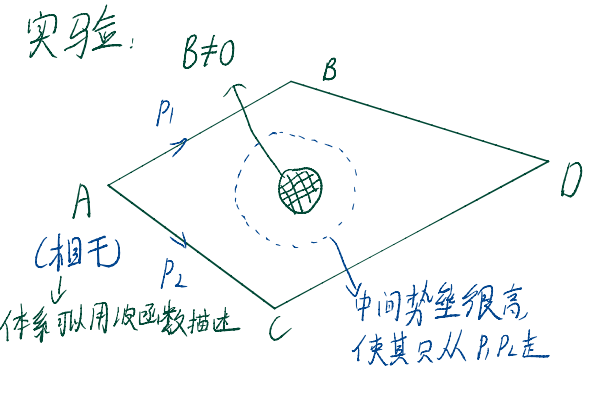 实验:
B≠0
B
P1
A
D
(相干)
P2
体系可以用波函数描述
C
中间势垒很高,
使其只从P1P2走